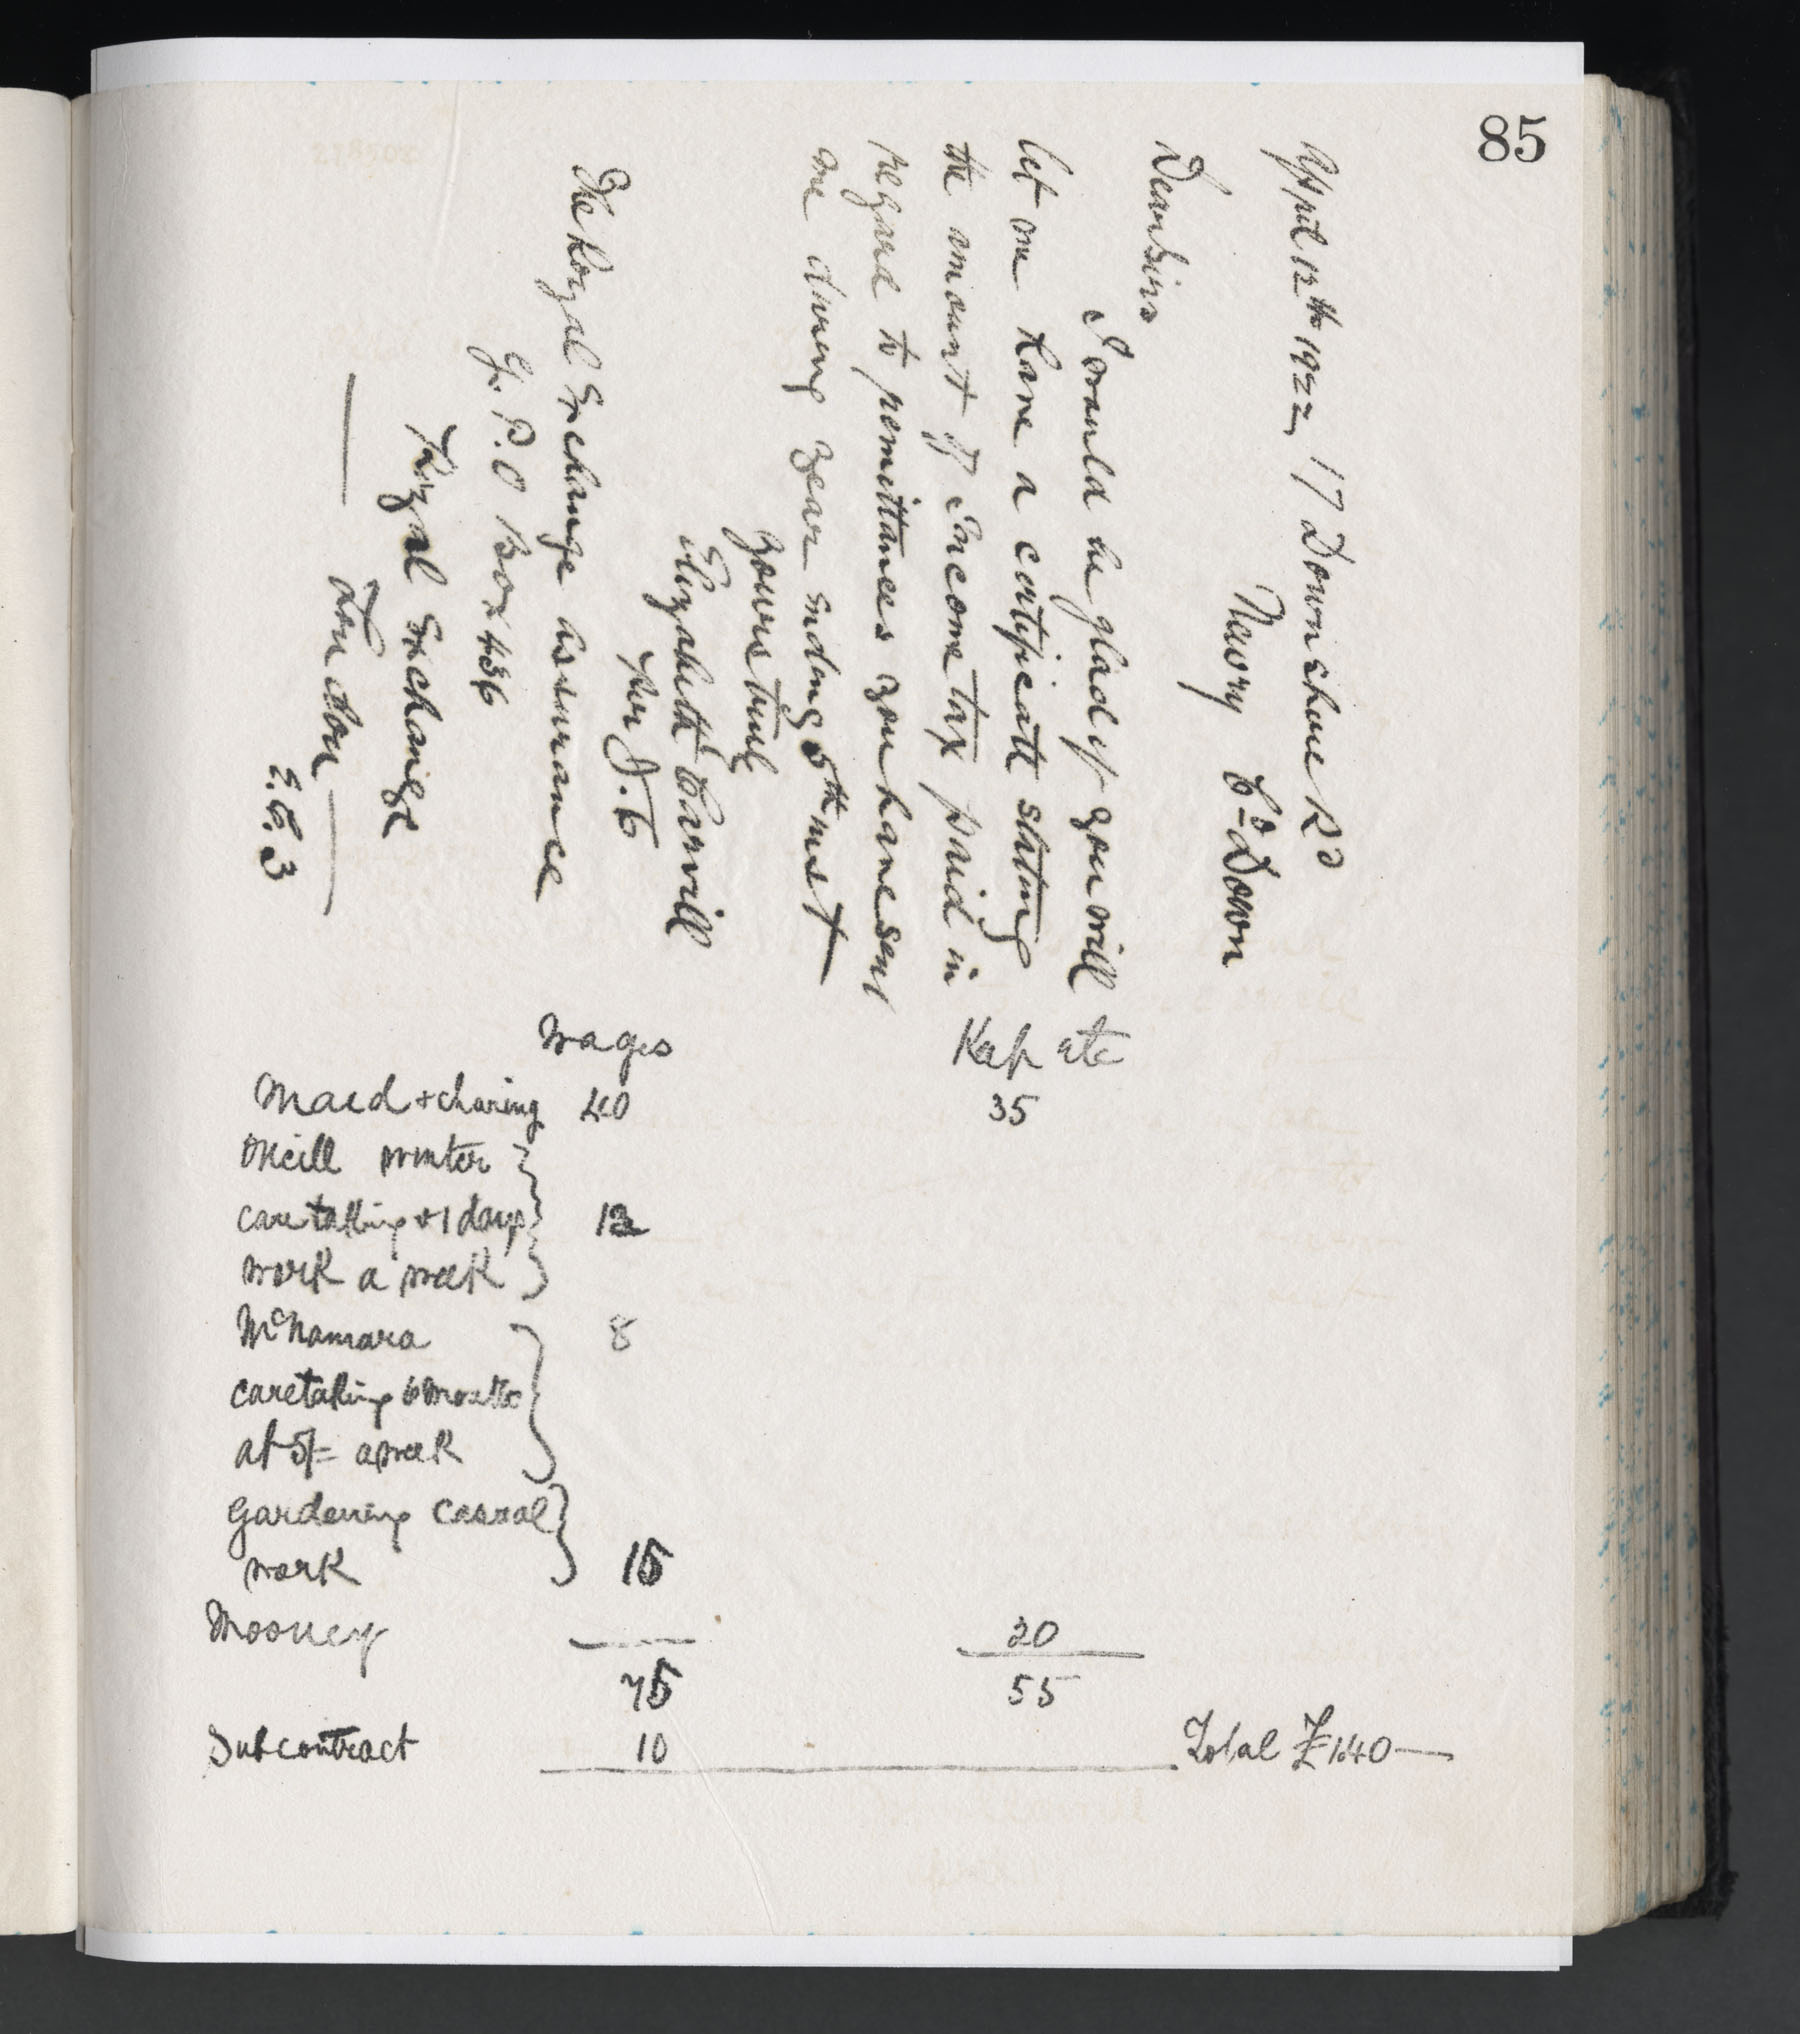 85
April 12th 1922, 17 Downshire Rd
Newry Co Down
Dear Sirs
I would be glad if you will
let me have a certificate stating
the amount of Income tax paid in
regard to remittances you have sent
me during year ending 5th inst
yours truly
Elizabeth Carvill
Per J. C
The Royal Exchange Assurance
G. P. O Box 436
Royal Exchange
London
E. C. 3
Wages Keep etc
Maid + charing 40 35
O'Neill winter
caretaking + 1 days 12
work a week
McNamara 8
caretaking 6 months
at 5/= a week
Gardening casual
work 15
Mooney 20
75 55
Subcontract 10 Total £140—